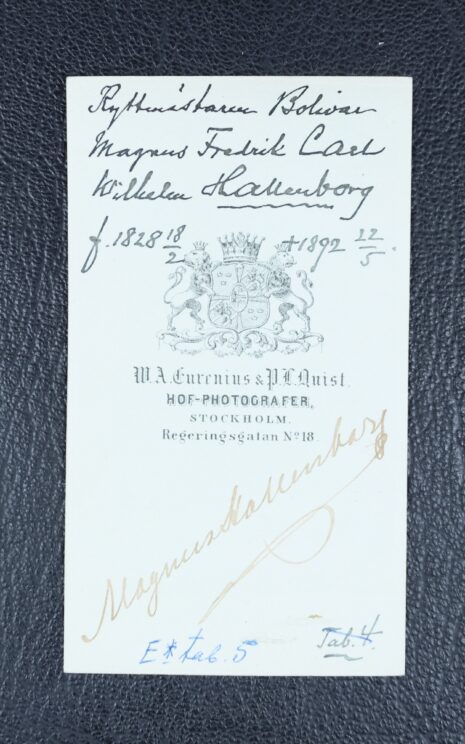 Ryttmästaren Bolivar
Magnus Fredrik Carl
Wilhelm Hallenborg
f. 1828 18/2 +1892 22/5.
W.A. Eurenius & P.L. Quist.
HOF-PHOTOGRAFER,
STOCKHOLM.
Regeringsgatan No 18.
Magnus Hallenborg
E* tab. 5
Tab. 4.